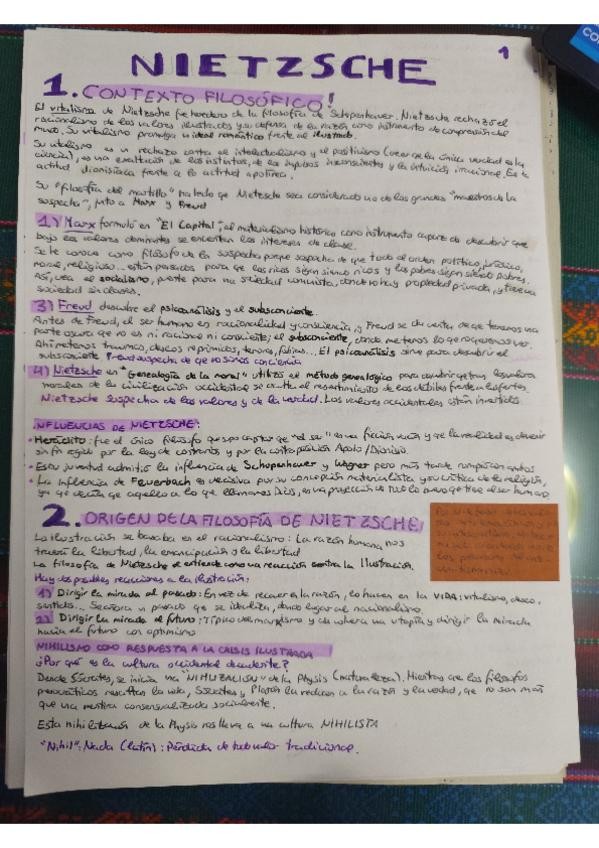 1
NIETZSCHE
1. CONTEXTO FILOSÓFICO!
El vitalismo de Nietzsche fue heredero de la filosofía de Schopenhauer. Nietzsche rechazó el
racionalismo de los valores ilustrados y su defensa de la razón como instrumento de comprensión del
mundo. Su vitalismo promulga un ideal romántico frente al ilustrado.
Su vitalismo es un rechazo contra el intelectualismo y el positivismo (creer que la única verdad es la
ciencia), es una exaltación de los instintos, de los impulsos inconscientes y la intuición irracional. Es la
actitud dionisíaca frente a la actitud apolínea.
Su "filosofía del martillo" ha hecho que Nietzsche sea considerado uno de los grandes "maestros de la
sospecha", junto a Marx y Freud
1) Marx formuló en "El Capital", el materialismo histórico como instrumento capaz de descubrir que
bajo los valores dominantes se encuentran los intereses de clase.
Se le conoce como filósofo de la sospecha porque sospecha de que todo el orden político, jurídico,
moral, religioso... están pensados para que los ricos sigan siendo ricos y los pobres sigan siendo pobres.
Así, crea el socialismo, puente para una sociedad comunista, donde no hay propiedad privada, y
sociedad sin clases.
3) Freud descubre el psicoanálisis y el subconsciente.
Antes de Freud, el ser humano es racionalidad y consciencia, y Freud se da cuenta de que tenemos una
parte oscura que no es ni racional ni consciente; el subconsciente, donde metemos lo que no queremos ver.
Ahí metemos traumas, deseos reprimidos, temores, fobias... El psicoanálisis sirve para descubrir el
subconsciente. Freud sospecha de que no somos conciencia
4) Nietzsche en "Genealogía de la moral" utilizó el método genealógico para que tras los valores
morales de la civilización occidental se oculta el resentimiento de los débiles frente a los fuertes.
Nietzsche sospecha de los valores y de la verdad. Los valores occidentales están invertidos.
INFLUENCIAS DE NIETZSCHE:
• Heráclito: fue el único filósofo que supo captar que "el ser" es una ficción vacía y que la realidad es devenir
sin fin regido por la ley de contrarios y por la contraposición Apolo / Dionisio.
• En su juventud admitió la influencia de Schopenhauer y Wagner pero más tarde rompería con ambos
• La influencia de Feuerbach es decisiva por su concepción materialista y su crítica de la religión,
ya que decía que aquello a lo que llamamos Dios, es una proyección de todo lo bueno que tiene el ser humano.
2. ORIGEN DE LA FILOSOFÍA DE NIETZSCHE
La ilustración se basaba en el racionalismo: La razón humana nos
traería la libertad, la emancipación y la libertad
La filosofía de Nietzsche se entiende como una reacción contra la Ilustración.
Hay dos posibles reacciones a la ilustración:
1) Dirigir la mirada al pasado: En vez de recaer en la razón, lo hace en la VIDA: vitalismo, deseo,
sentidos... Se añora un pasado que se idealiza, dando lugar al nacionalismo.
2) Dirigir la mirada al futuro: Típico del marxismo y de crear una utopía y dirigir la mirada
hacia el futuro con optimismo
NIHILISMO COMO RESPUESTA A LA CRISIS ILUSTRADA
¿Por qué es la cultura occidental decadente?
Desde Sócrates, se inicia una "NIHILIZACIÓN" de la Physis (naturaleza). Mientras que los filósofos
presocráticos resaltan la vida, Sócrates y Platón la reducen a la razón y la verdad, que no son más
que una mentira consensualizada socialmente.
Esta nihilización de la Physis nos lleva a una cultura NIHILISTA
"Nihil": Nada (latín): Pérdida de todo valor tradicional.